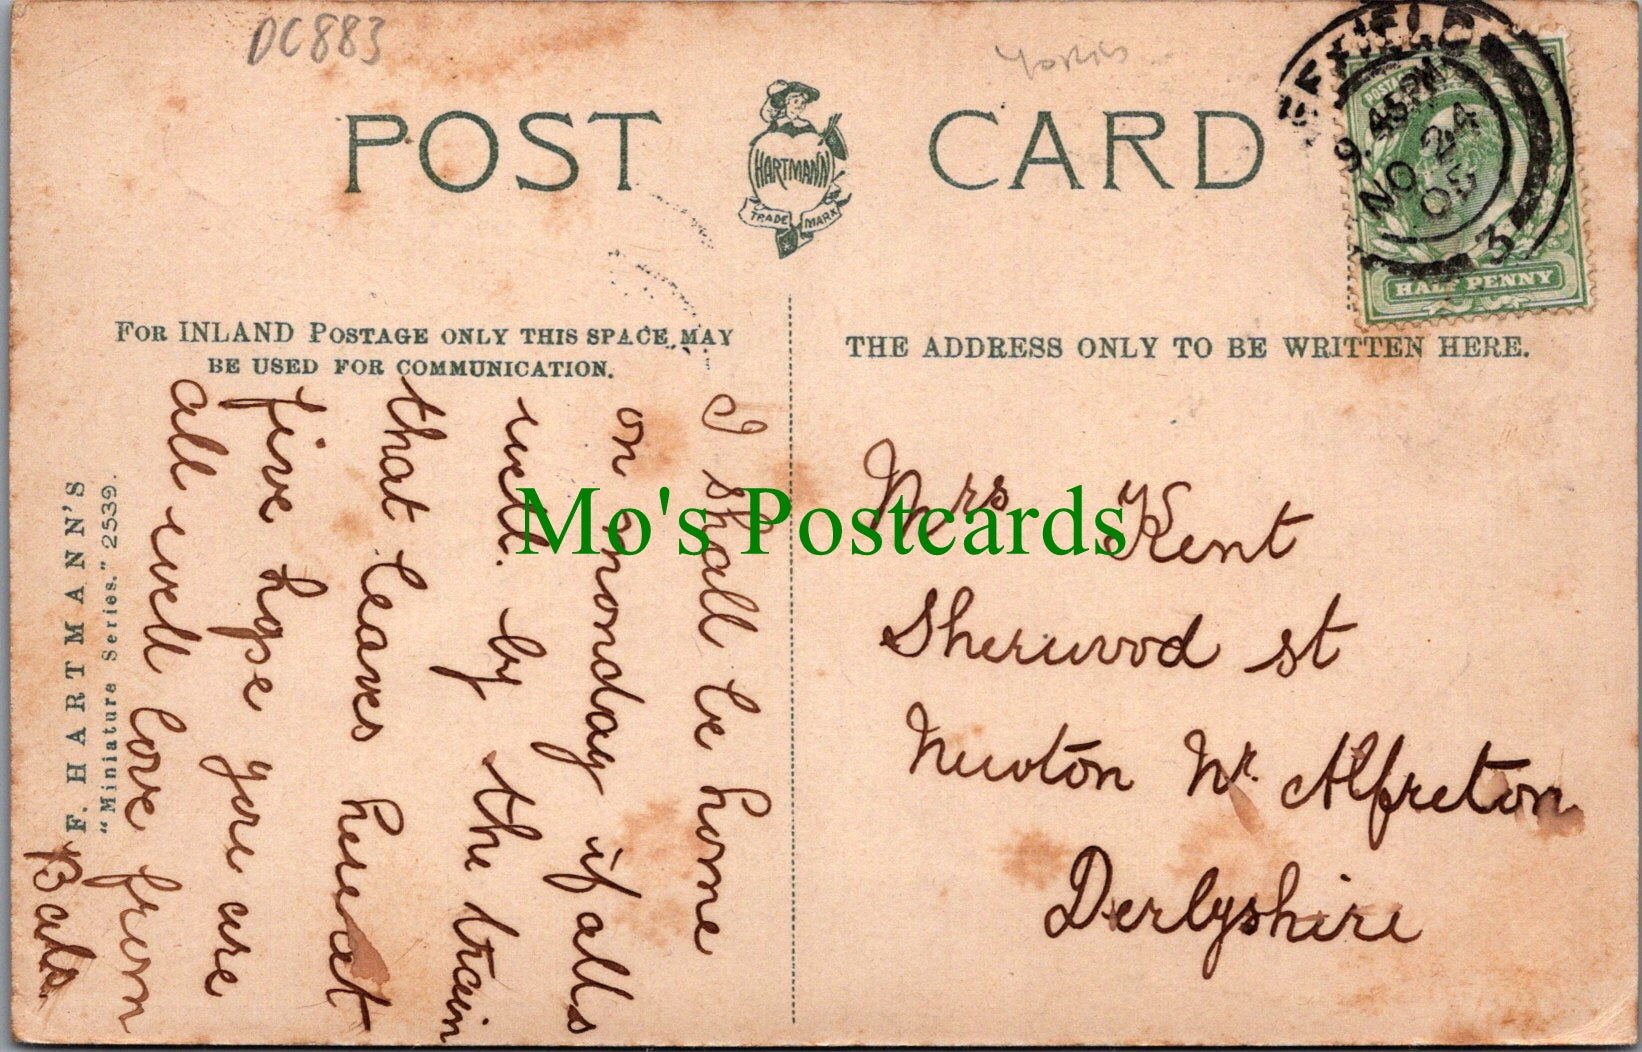 DC883
Yorks
POST CARD
HARTMANN
TRADE MARK
EFFIELD
9.45PM
NO 24
05
3
HALF PENNY
FOR INLAND POSTAGE ONLY THIS SPACE MAY
BE USED FOR COMMUNICATION.
THE ADDRESS ONLY TO BE WRITTEN HERE.
F. HARTMANN'S
"Miniature Series." 2539.
I shall be home
on monday if alls
well. by the train
that leaves here at
five hope you are
all well love from
Mrs Kent
Sherwood st
Newton Nr. Alfreton
Derbyshire
Mo's Postcards